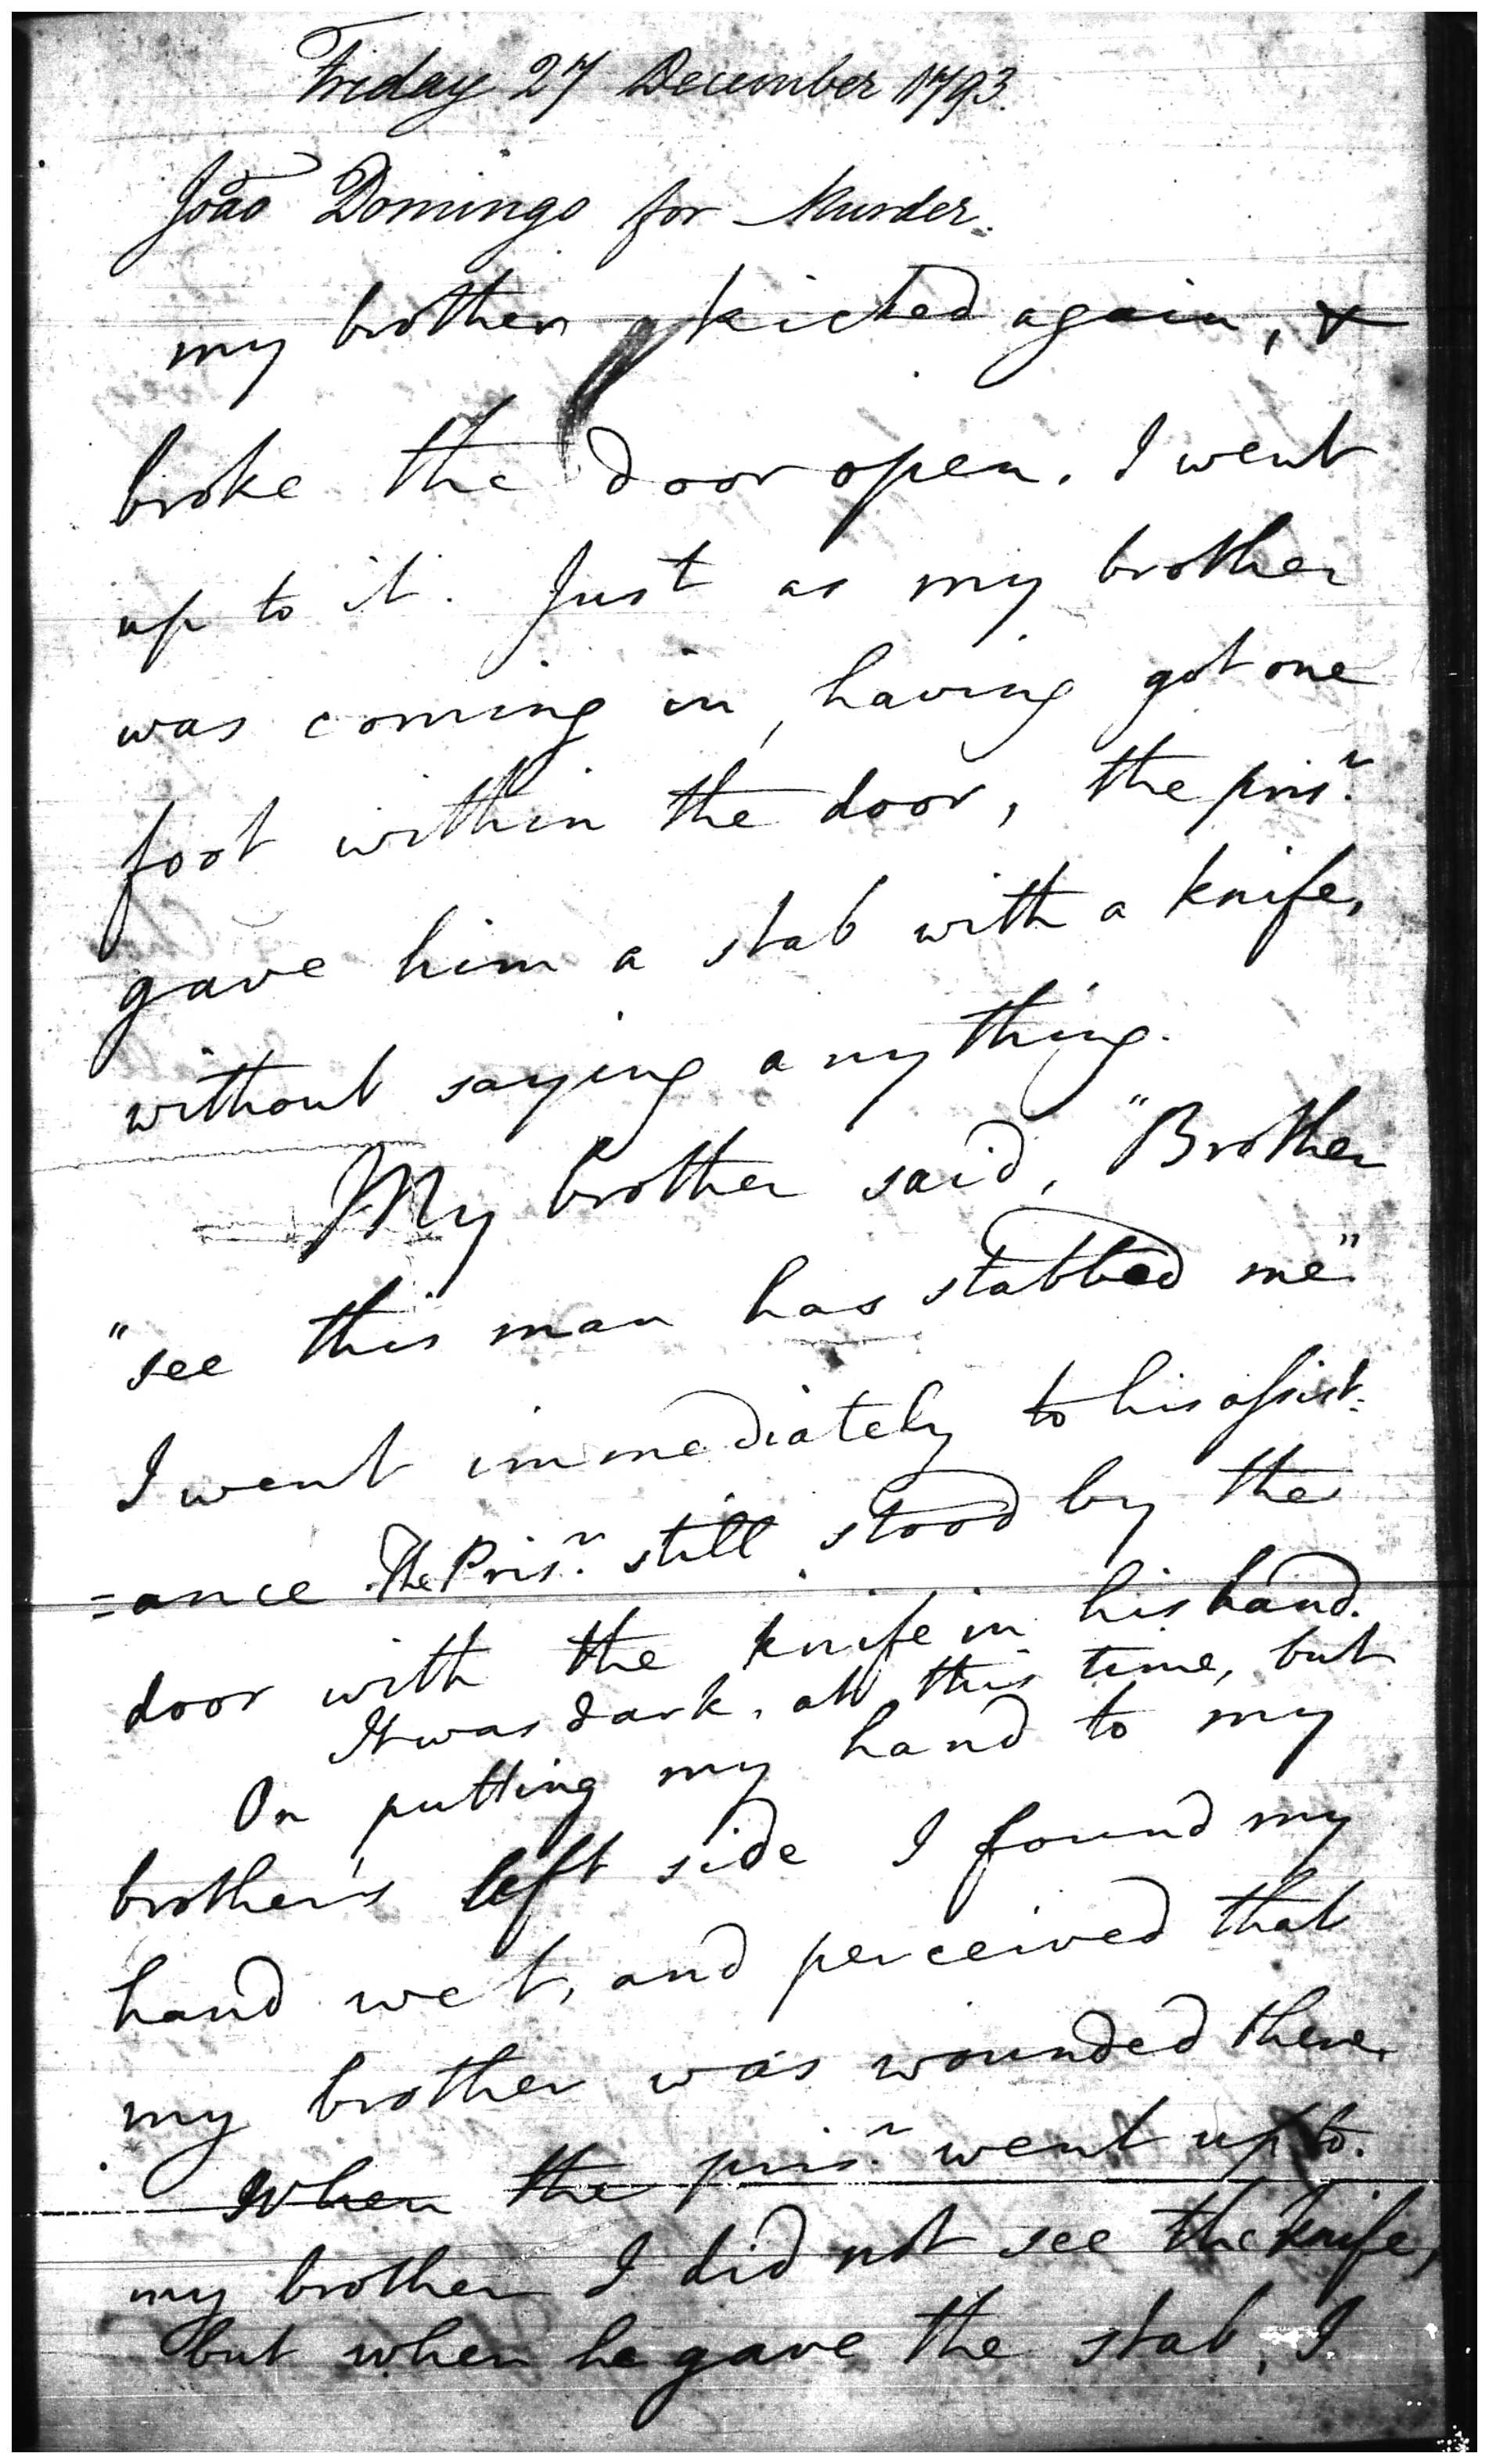 Friday 27 December 1793.
João Domingo for Murder.
my brother kicked again, &
broke the door open. I went
up to it. Just as my brother
was coming in, having got one
foot within the door, the prisr.
gave him a stab with a knife,
without saying any thing.
My brother said, "Brother
"see this man has stabbed me"
I went immediately to his assist-
=ance. The Prisr. still stood by the
door with the knife in his hand.
It was dark, at this time, but
On putting my hand to my
brother's left side I found my
hand wet, and perceived that
my brother was wounded there.
When the prisr. went up to
my brother I did not see the knife,
but when he gave the stab, I